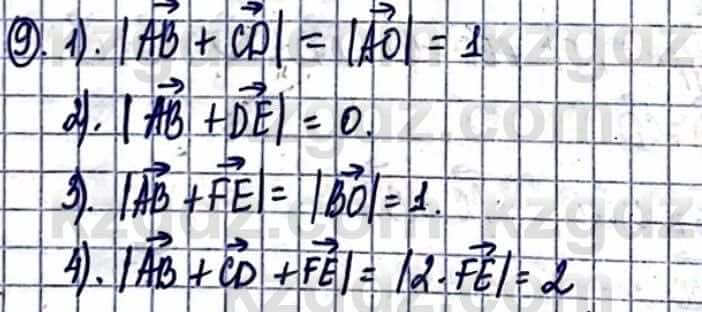 ⑨. 1). |A⃗B⃗ + C⃗D⃗| = |A⃗O⃗| = 1
2). |A⃗B⃗ + D⃗E⃗| = 0.
3). |A⃗B⃗ + F⃗E⃗| = |B⃗O⃗| = 1.
4). |A⃗B⃗ + C⃗D⃗ + F⃗E⃗| = |2 · F⃗E⃗| = 2